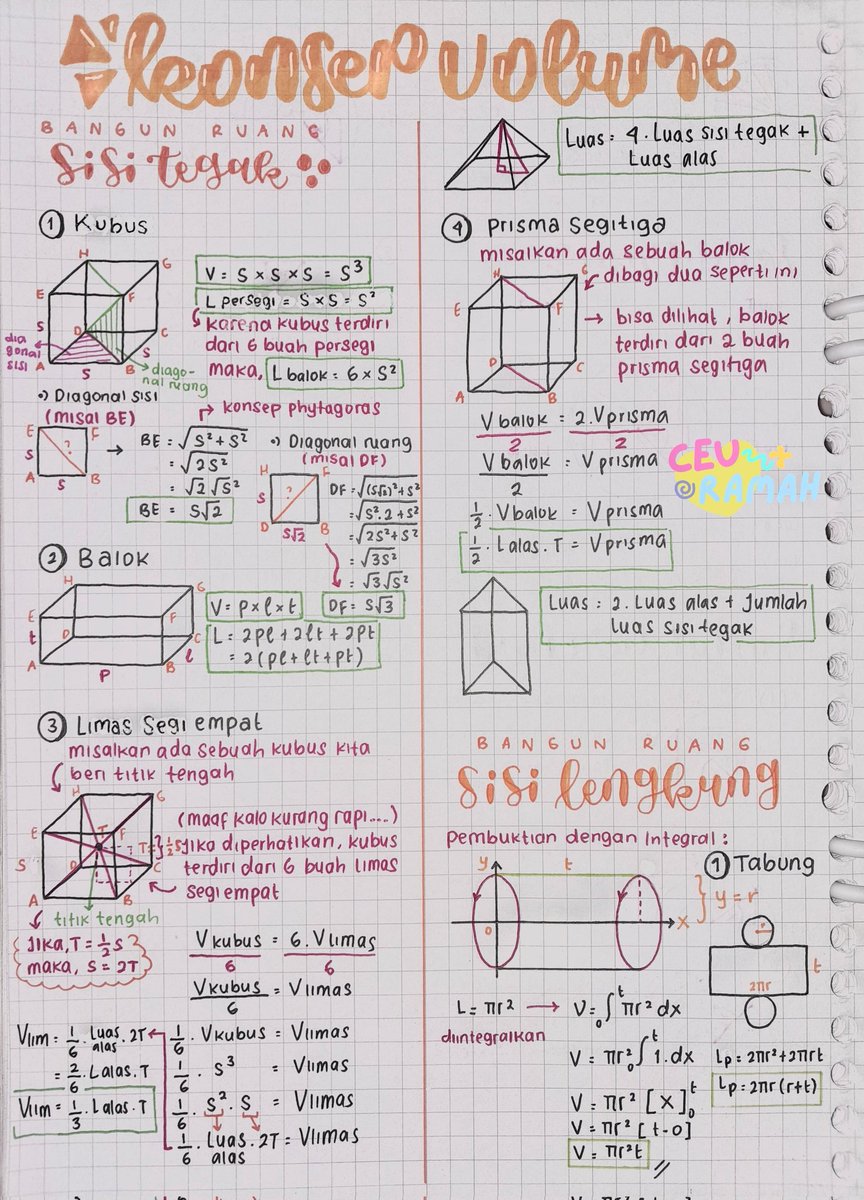 konsep volume
BANGUN RUANG
sisi tegak
① Kubus
H
G
E
F
S
D
C
dia
gonal
sisi
A
B
S
S
diago-
nal ruang
V = S × S × S = S³
L persegi = S × S = S²
karena kubus terdiri
dari 6 buah persegi
maka, L balok = 6 × S²
•) Diagonal sisi
(misal BE)
konsep phytagoras
E F
S ?
A B
S
→ BE = √S² + S²
= √2S²
= √2 √S²
BE = S√2
•) Diagonal ruang
(misal DF)
H F
S ?
D B
S√2
DF = √(S√2)² + S²
= √S².2 + S²
= √2S² + S²
= √3S²
= √3 √S²
DF = S√3
② Balok
H G
E F
t D C
A B l
P
V = p × l × t
L = 2pl + 2lt + 2pt
= 2(pl + lt + pt)
③ Limas Segi empat
misalkan ada sebuah kubus kita
beri titik tengah
H G
E T F
T = } ½ S
S D C
A B
titik tengah
(maaf kalo kurang rapi....)
Jika diperhatikan, kubus
terdiri dari 6 buah limas
segi empat
Jika, T = ½ S
maka, S = 2T
V kubus = 6. V limas
6 6
V kubus = V limas
6
1/6 . V kubus = V limas
1/6 . S³ = V limas
1/6 . S² . S = V limas
1/6 . Luas alas . 2T = V limas
V lim = 1/6 . Luas alas . 2T
= 2/6 . L alas . T
V lim = 1/3 . L alas . T
Luas = 4. Luas sisi tegak +
Luas alas
④ Prisma Segitiga
misalkan ada sebuah balok
dibagi dua seperti ini
H G
E F
D C
A B
→ bisa dilihat, balok
terdiri dari 2 buah
prisma segitiga
V balok = 2. V prisma
2 2
V balok = V prisma
2
½ . V balok = V prisma
½ . L alas . T = V prisma
CEU
@RAMAH
Luas = 2. Luas alas + Jumlah
luas sisi tegak
BANGUN RUANG
sisi lengkung
Pembuktian dengan Integral :
① Tabung
y
t
0
x
} y = r
r
t
2πr
L = πr² → V = ₀∫ᵗ πr² dx
diintegralkan
V = πr² ₀∫ᵗ 1. dx
V = πr² [x]₀ᵗ
V = πr² [t-0]
V = πr²t
Lp = 2πr² + 2πrt
Lp = 2πr (r+t)